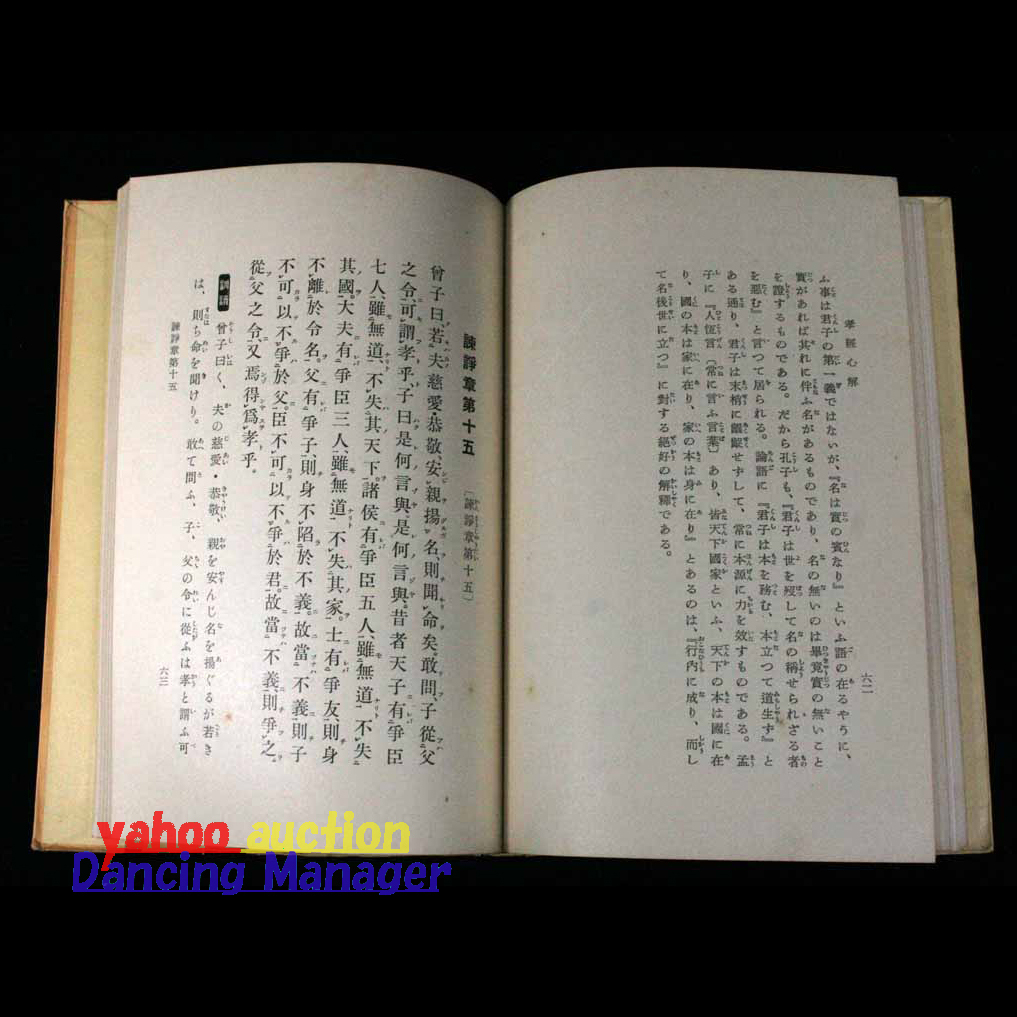 孝經心解
六二
ふ事は君子の第一義ではないが、『名は實の賓なり』といふ語の在るやうに、
實があれば其れに伴ふ名があるものであり、名の無いのは畢竟實の無いこと
を證するものである。だから孔子も、『君子は世を歿して名の稱せられざる者
を惡む』と言つて居られる。論語に『君子は本を務む、本立つて道生ず』と
ある通り、君子は末梢に齷齪せずして、常に本源に力を效すものである。孟
子に『人恆言〔常に言ふ言葉〕あり、皆天下國家といふ、天下の本は國に在
り、國の本は家に在り、家の本は身に在り』とあるのは、『行內に成り、而し
て名後世に立つ』に對する絕好の解釋である。
諫諍章第十五
〔諫諍章第十五〕
曾子曰、若夫慈愛・恭敬、安親揚名、則聞命矣。敢問、子從父
之令、可謂孝乎。子曰、是何言與、是何言與。昔者天子有爭臣
七人、雖無道、不失其天下。諸侯有爭臣五人、雖無道、不失
其國。大夫有爭臣三人、雖無道、不失其家。士有爭友、則身
不離於令名。父有爭子、則身不陷於不義。故當不義、則子
不可以不爭於父。臣不可以不爭於君。故當不義、則爭之。
從父之令、又焉得爲孝乎。
訓讀
曾子曰く、夫の慈愛・恭敬、親を安んじ名を揚ぐるが若き
は、則ち命を聞けり。敢て問ふ、子、父の令に從ふは孝と謂ふ可
諫諍章第十五
六三
yahoo auction
Dancing Manager